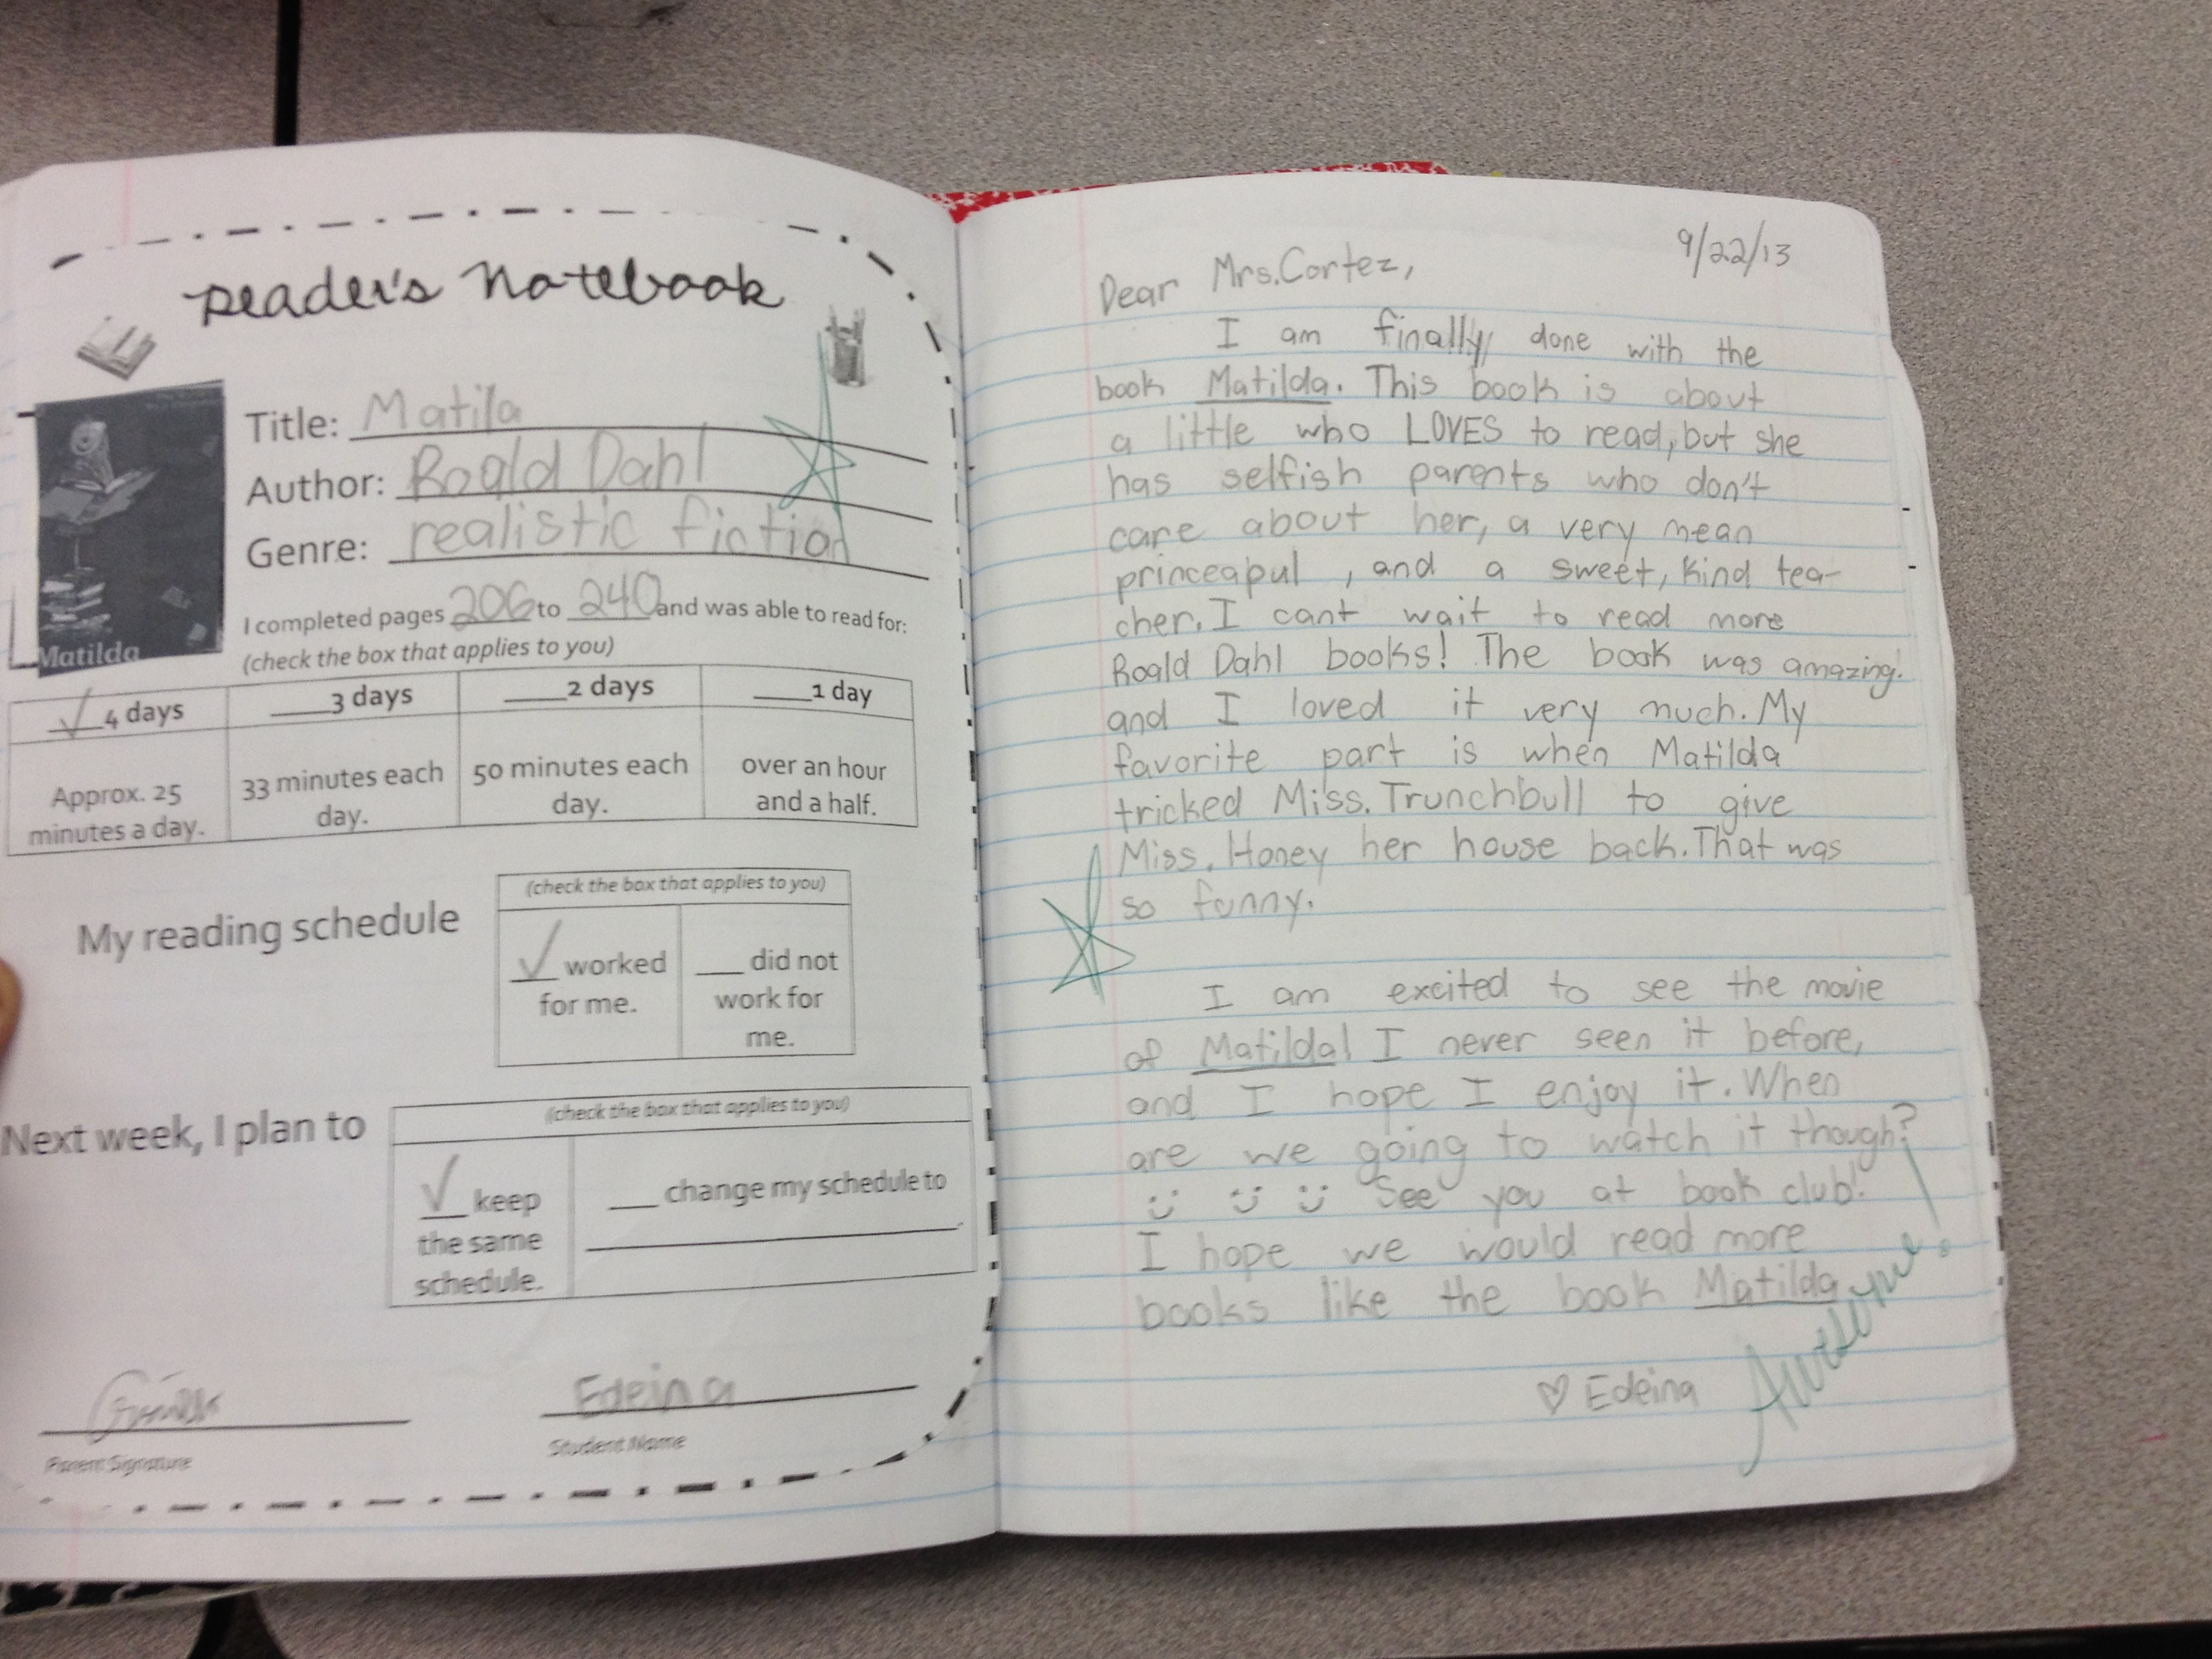 Reader's Notebook
Title: Matila
Author: Roald Dahl
Genre: realistic fiction
Matilda
I completed pages 206 to 240 and was able to read for:
(check the box that applies to you)
✓ 4 days ____3 days ____2 days ____1 day
Approx. 25 minutes a day.
33 minutes each day.
50 minutes each day.
over an hour and a half.
My reading schedule
(check the box that applies to you)
✓ worked for me.
___ did not work for me.
Next week, I plan to
(check the box that applies to you)
✓ keep the same schedule.
___ change my schedule to
Edeina
Parent Signature
Student Name
9/22/13
Dear Mrs.Cortez,
I am finally done with the
book Matilda. This book is about
a little who LOVES to read, but she
has selfish parents who don't
care about her, a very mean
princeapul , and a sweet, kind tea-
cher. I cant wait to read more
Roald Dahl books! The book was amazing.
and I loved it very much. My
favorite part is when Matilda
tricked Miss. Trunchbull to give
Miss. Honey her house back. That was
so funny.
I am excited to see the movie
of Matilda! I never seen it before,
and I hope I enjoy it. When
are we going to watch it though?
:) :) :) See you at book club!
I hope we would read more
books like the book Matilda
♡ Edeina
Awesome!